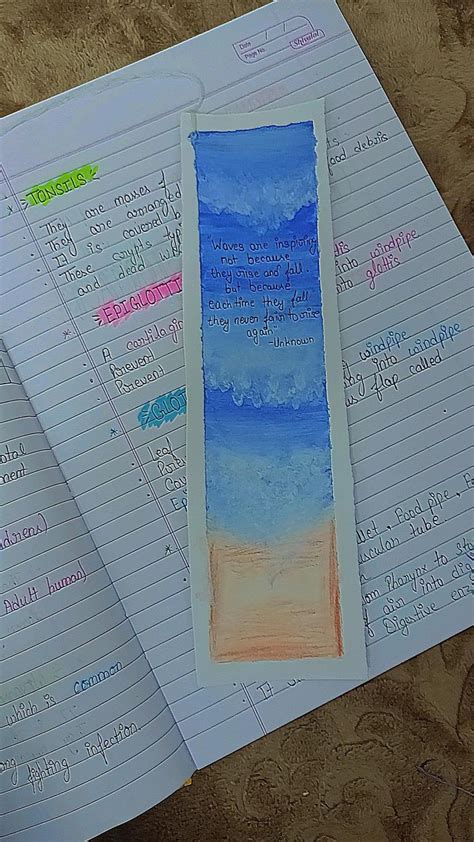 Date / /
Page No.
Shivalal
TONSILS
They are masses of
They are arranged
It is covered b
These crypts typ
and dead w
ood debris
EPIGLOTTI
A cartilagin
Prevent
Prevent
ttis
into windpipe
into glottis
GLOT
Leaf
Cov
Ep
windpipe
ng into windpipe
flap called
"Waves are inspiring
not because
they rise and fall.
but because
each time they fall
they never fain to rise
again"
-Unknown
otal
ment
Adult human)
which is common
fighting infection.
, Food pipe,
scular tube.
om Pharynx to St
air into dig
Digestive enz